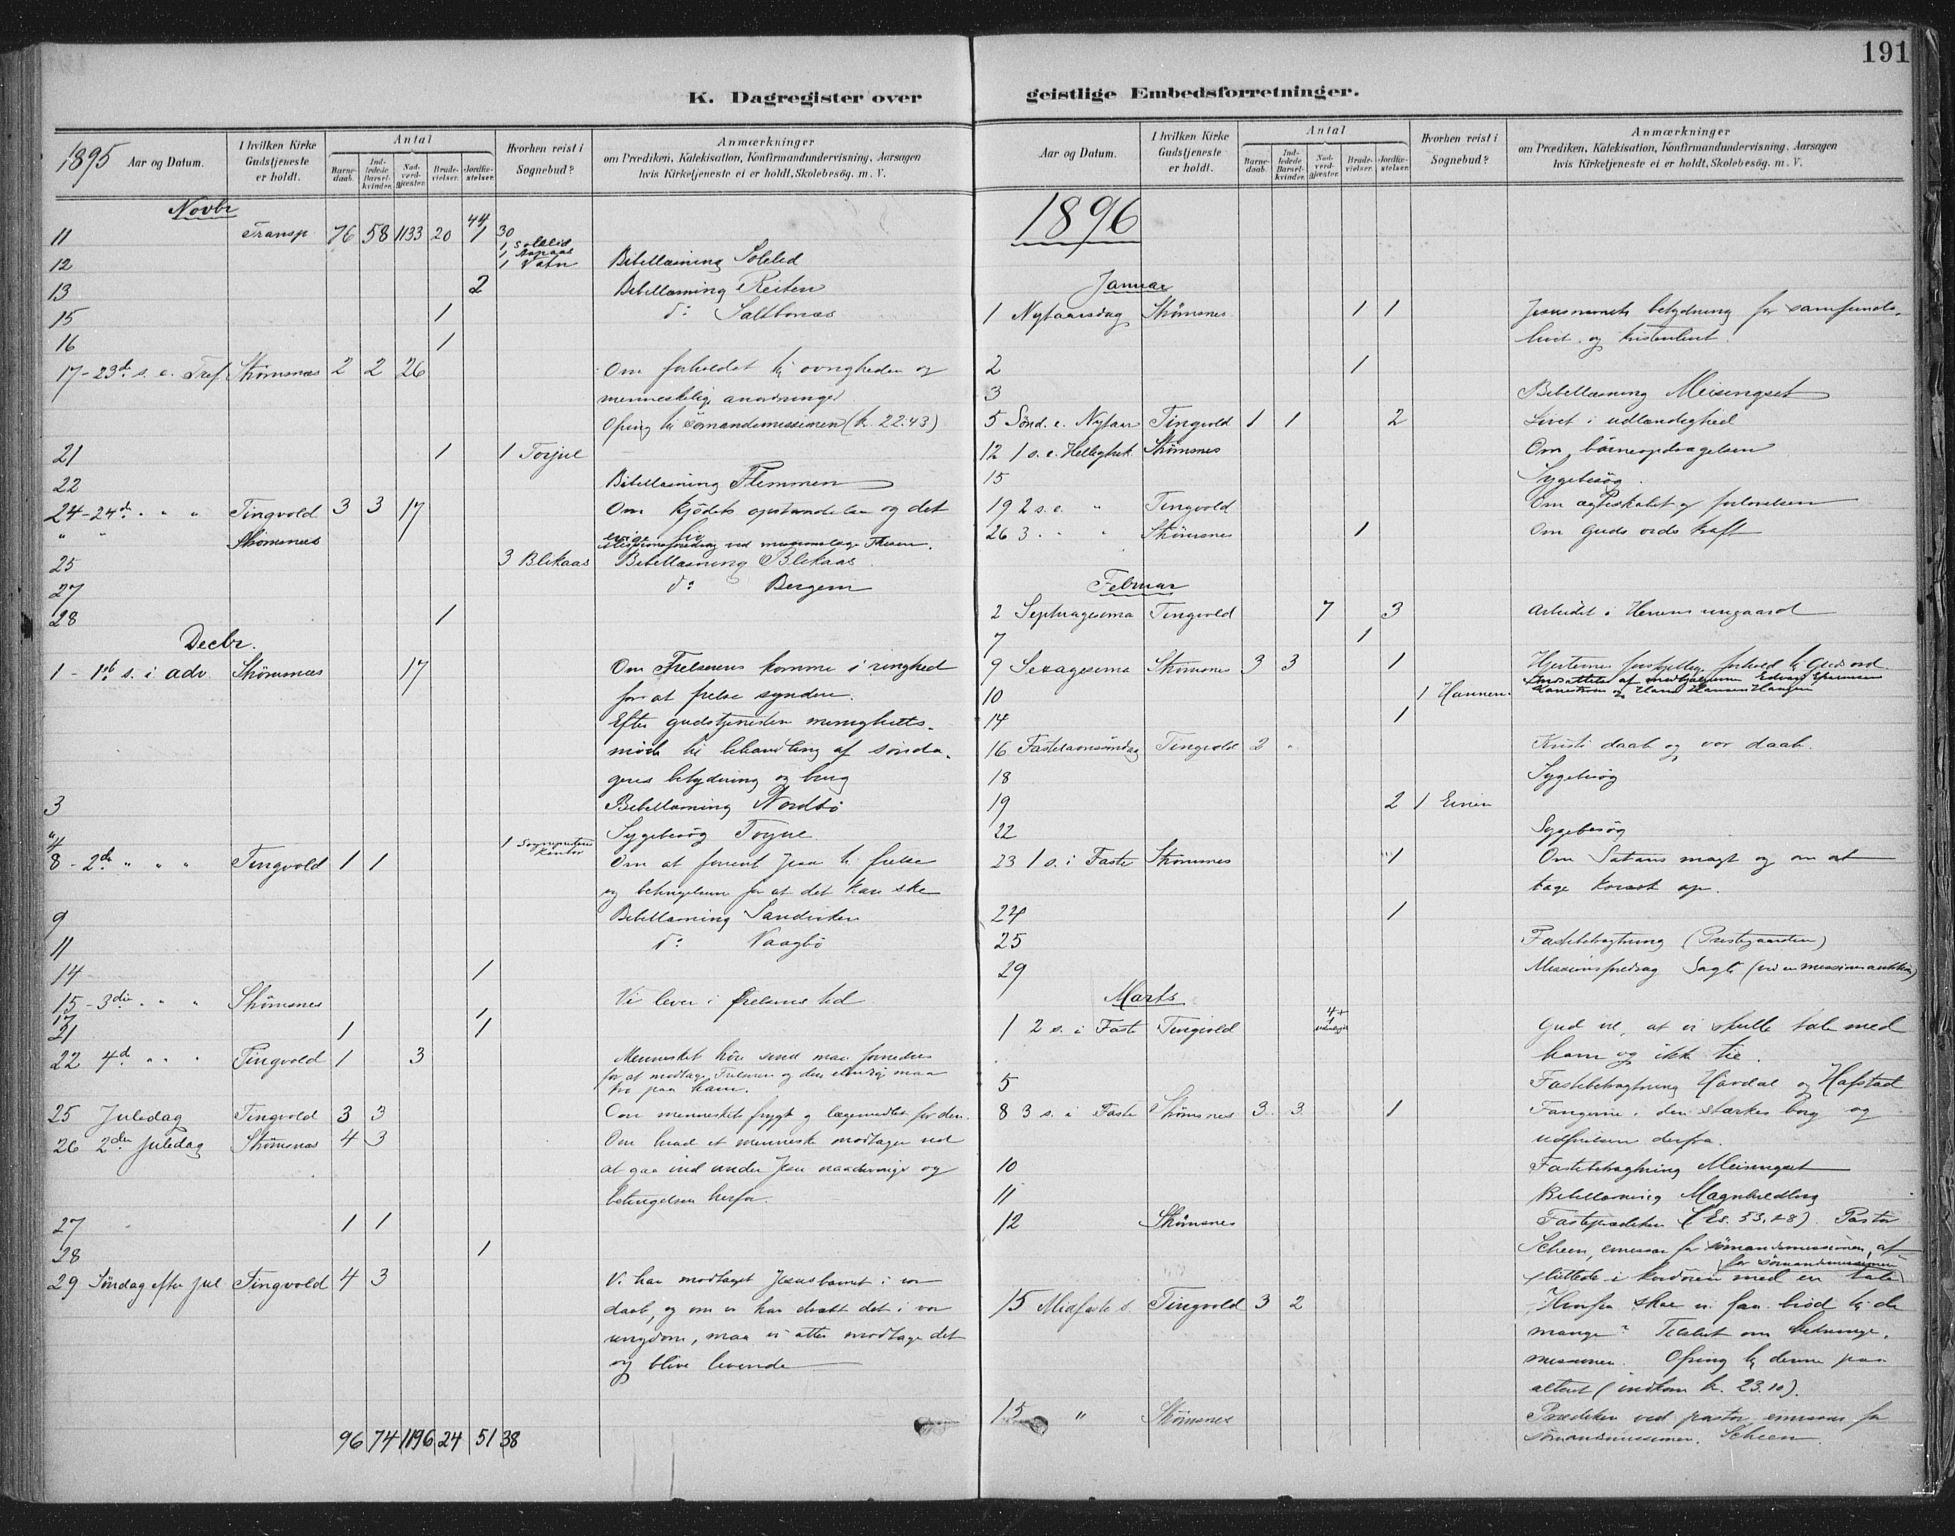 191
K. Dagregister over
1895 Aar og Datum.
I hvilken Kirke Gudstjeneste er holdt.
Antal
Barne-daab.
Ind-ledede Barsel-kvinder.
Nad-verd-gjæster.
Brude-vielser.
Jordfæ-stelser.
Hvorhen reist i Sognebud?
Anmærkninger
om Prædiken, Katekisation, Konfirmandundervisning, Aarsagen
hvis Kirketjeneste ei er holdt, Skolebesøg. m. V.
Novbr
11 Transp 76 58 1133 20 44 1 30
1 Solelid
1 Aspaas
12 1 Vatn Bibellæsning Solelid
13 2 Bibellæsning Reiten
15 1 do Saltbones
16 1
17 - 23de s. e. Tref. Strømsnæs 2 2 26 Om forholdet til øvrigheden og
menneskelige anordninger
Ofring til sømandsmissionen (kr. 22.43)
21 1 1 Torjul
22 Bibellæsning Flemmen
24 - 24de " " " Tingvold 3 3 17 Om kjødets opstandelse og det
evige liv
" " Strømsnæs Missionsforedrag ved
25 3 Blekaas Bibellæsning Blekaas
27 do Bergem
28 1
Decbr.
1 - 1ste s. i adv. Strømsnæs 17 Om Frelserens komme i ringhed
for at frelse syndere.
Efter gudstjenesten menigheds-
møde til behandling af sønda-
gens betydning og brug
3 Bibellæsning Nordbø
4 Sygebesøg Torjul
8 - 2den " " " Tingvold 1 1 1 Om at Jesu til frelse
og betingelsen for at det kan ske
9 Bibellæsning Sandviken
11 do Vaagbø
14 1
15 - 3die " " " Strømsnes Vi lever i frelsens tid
17 1
21 1 1
22 4de " " " Tingvold 1 3 Mennesket høie sind maa fornedres
for at modtage Frelseren og den maa
tro paa ham.
25 Juledag Tingvold 3 3 Om menneskets frygt og lægemidlet for den.
26 2den juledag Strømsnæs 4 3 Om hvad et menneske modtager ved
at gaa ind under Jesu naaderige og
betingelsen herfor.
27 1 1
28 1
29 Søndag efter jul Tingvold 4 3 Vi har modtaget Jesusbarnet i vor
daab, og om vi har dræbt det i vor
ungdom, maa vi atter modtage det
og blive levende
96 74 1196 24 51 38
geistlige Embedsforretninger.
Aar og Datum.
I hvilken Kirke Gudstjeneste er holdt.
Antal
Barne-daab.
Ind-ledede Barsel-kvinder.
Nad-verd-gjæster.
Brude-vielser.
Jordfæ-stelser.
Hvorhen reist i Sognebud?
Anmærkninger
om Prædiken, Katekisation, Konfirmandundervisning, Aarsagen
hvis Kirketjeneste ei er holdt, Skolebesøg. m. V.
1896
Januar
1 Nytaarsdag Strømsnes 1 1 Jesusnavnets betydning for samfunds-
livet og kristenlivet.
2 1
3 Bibellæsning Meisingset
5 Sønd. e. Nytaar Tingvold 1 1 2 Livet i udlændighed
12 1 s. e. Helligtrek. Strømsnes Om børneopdragelsen
15 Sygebesøg.
19 2 s. e. " Tingvold Om ægteskabet og forlovelsen
26 3 " " Strømsnes 1 Om Guds ords kraft
Februar
2 Septuagesima Tingvold 7 3 Arbeidet i Herrens vingaard
7 1
9 Sexagesima Strømsnes 3 3 1 Hjerternes forskjellige forhold til Guds ord.
Indsættelse af medhjælperne
10 1 Hannem og Hans Hansen
14 1
16 Fastelavnssøndag Tingvold 2 " Kristi daab og vor daab.
18 Sygebesøg
19 2 1
22 Sygebesøg
23 1 s. i Faste Strømsnes 1 Om Satans magt og om at
tage korset op.
24 1
25 Fastebetragtning (Prestegaarden)
29 Missionsforedrag Sagli (ved en missionsauktion)
Marts
1 2 s. i Faste Tingvold 4+1 Gud vil, at vi skulle tale med
ham og ikke tie.
5 Fastebetragtning Hørdal og Hafstad
8 3 s. i Faste Strømsnes 3 3 1 Fangerne i den stærkes borg og
udfrielsen derfra.
10 Fastebetragtning Meisingset
11 Bibellæsning Magnhildberg
12 Strømsnes Fasteprædiken (Es. 53, 8). Pastor
Scheen, emissær for sømandsmissionen, af-
sluttede i kordøren med en tale
for sømandsmissionen
15 Midfaste s. Tingvold 3 2 Hvorfra skal vi faa brød til de
mange? Tillæg om hedninge-
missionen. Ofring til denne paa
alteret (indkom kr. 23.10).
15 " Strømsnes Prædiken ved pastor, emissær for
sømandsmissionen, Scheen.